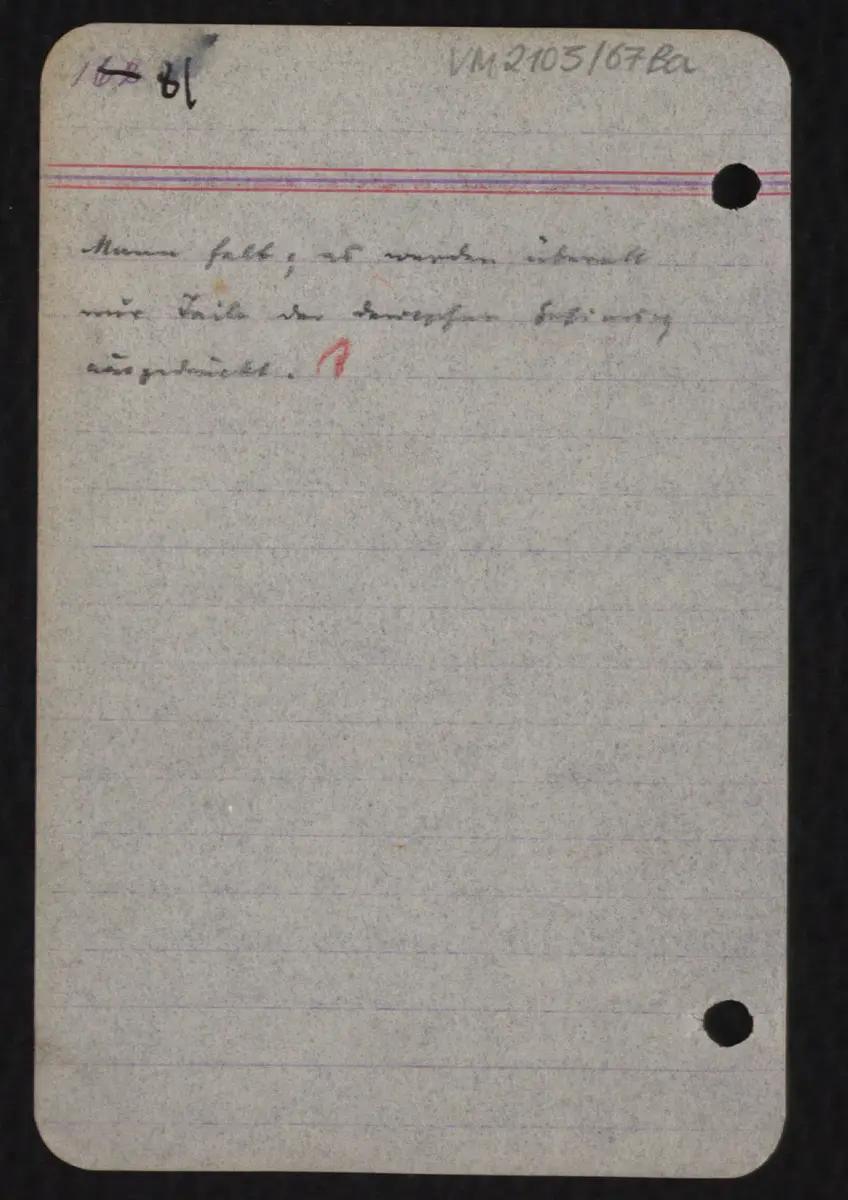 162 81
VM 2103/67 Ba
Mann selbst; es werden überall
nur Teile der deutschen
ausgedrückt.